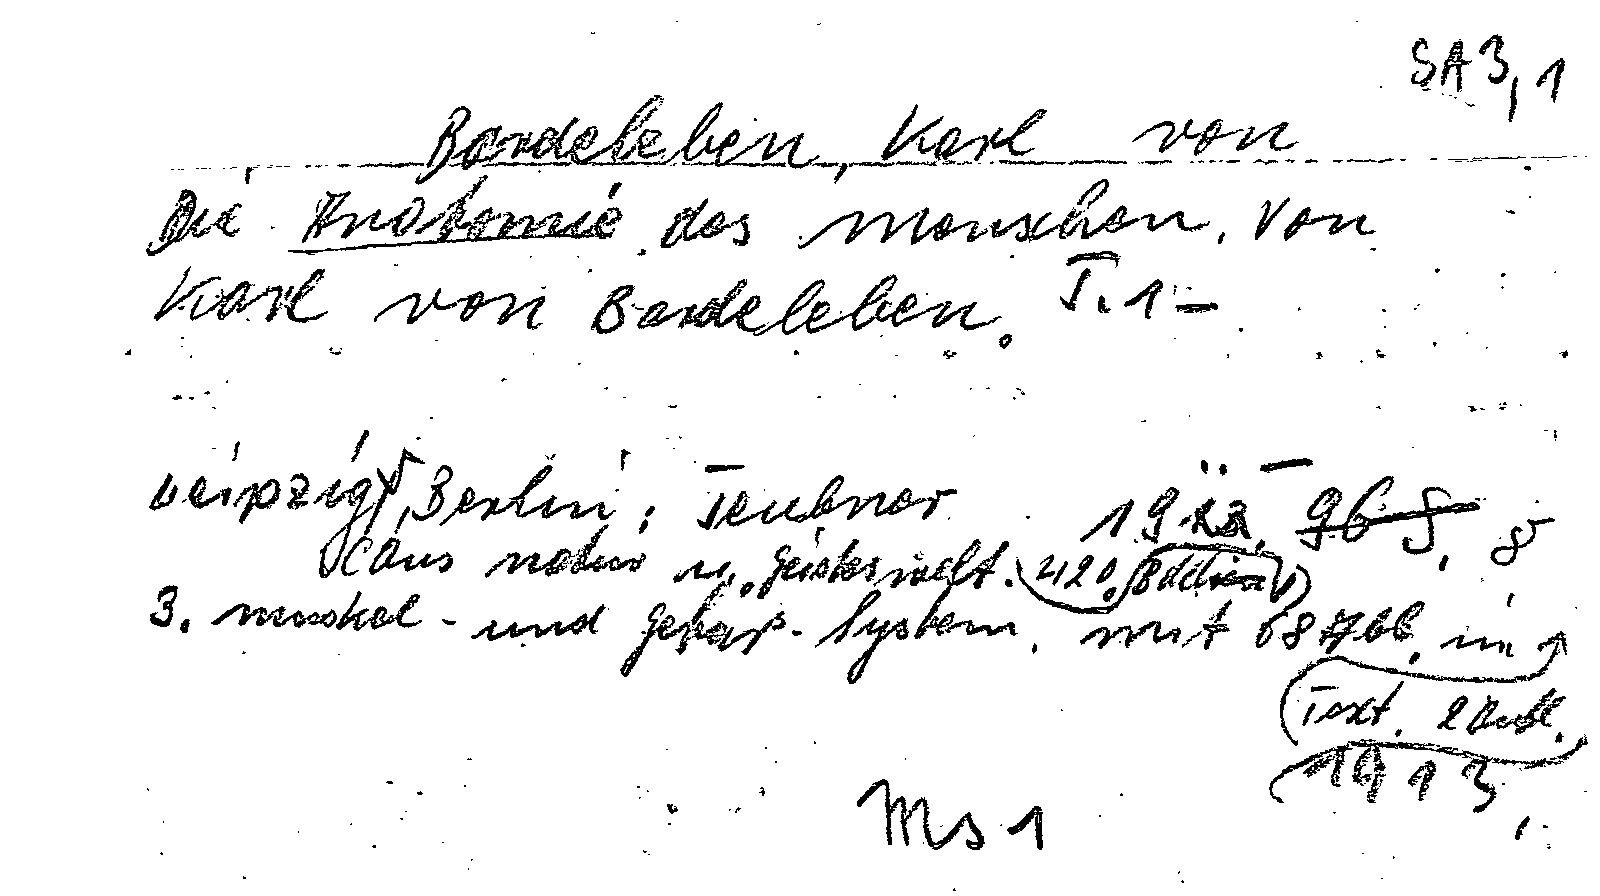 SA 3,1
Bardeleben, Karl von
Die Anatomie des Menschen. Von
Karl von Bardeleben. T. 1-
Leipzig, Berlin: Teubner 19.. 8
(Aus Natur u. Geisteswelt. 420.
3. Muskel- und Gefäss-System. Mit 68 Abb. im
Text. 2 Aufl.
1913
Ms 1